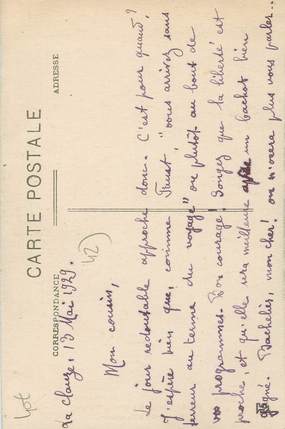 CARTE POSTALE
CORRESPONDANCE
ADRESSE
La Clauze, 13 Mai 1929.
Mon cousin,
Le jour redoutable approche donc. C'est pour quand?
J'espère bien que, comme Truest, "vous arrivez sans
terreur au terme du voyage" ou plutôt au bout de
vos programmes. Bon courage! Songez que la liberté est
proche, et qu'elle sera meilleure après un bachot bien
gagné. Bachelier, mon cher! on n'osera plus vous parler..
lot